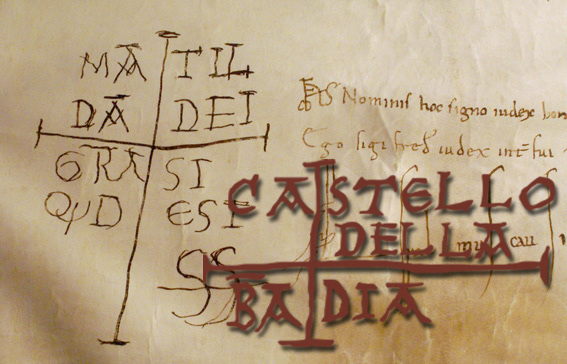 MA TIL
DA DEI
GRA SI
QVD EST
SS
Nominis hoc signo iudex
Ego sigifred iudex fui
CASTELLO
DELLA
BADIA